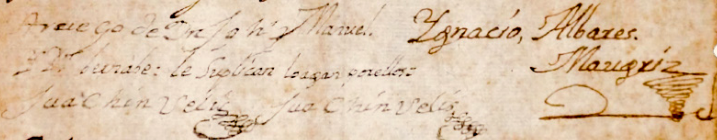 A ruego de Dn Jo hn y Manuel. Ygnacio, Albares.
bernabe: le Suplican lo agan por ellos: Maugriz
Jua Chin Velis Jua Chin Velis